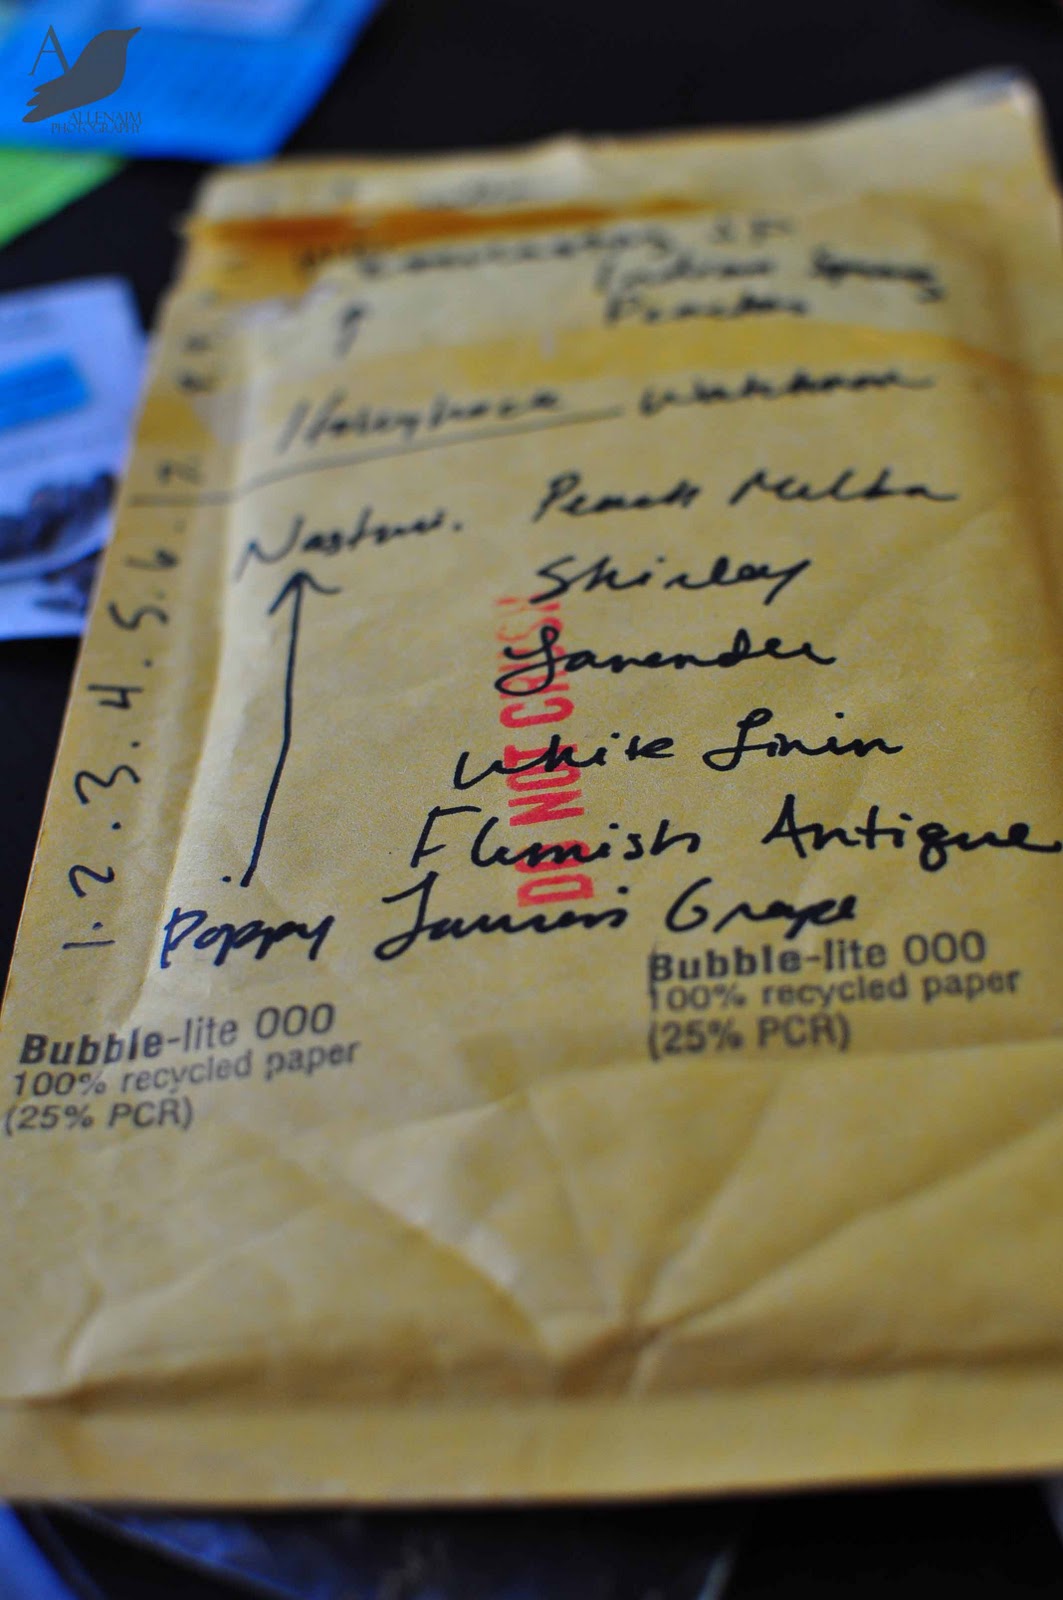 A
ALLENAIM
PHOTOGRAPHY
Indian Spring
9
Hollyhock Watchman
7
Nastur. Peach Melba
6.
Shirley
5.
Lavender
4.
White Linin
3.
Flemish Antique
2.
Poppy Lauren's Grape
1.
DO NOT CRUSH
Bubble-lite 000
100% recycled paper
(25% PCR)
Bubble-lite 000
100% recycled paper
(25% PCR)